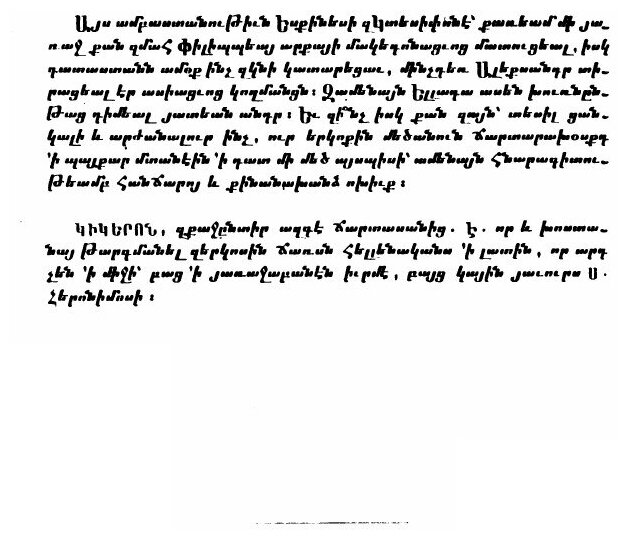 Այս ամբաստանութիւն Եսքինեսի զԿտեսիփոնէ՝ քառեամ մի յա-
ռաջ քան զմահ Փիլիպպեայ արքայի մակեդոնացւոց մատուցեալ, իսկ
դատաստանն ամօք ինչ զկնի կատարեցաւ, մինչդեռ Ալեքսանդր տի-
րացեալ էր ասիացւոց կողմանցն։ Զամենայն Ելլադա ասեն խուռնըն-
թաց դիմեալ յատեան անդր։ Եւ զի՞նչ իսկ քան զայն՝ տեսիլ ցան-
կալի և արժանալուր ինչ, ուր երկոքին մեծանուն ճարտարախօսքդ
՚ի պայքար մտանէին ՚ի դատ մի մեծ այսպիսի՝ ամենայն հնարագիտու-
թեամբ հանճարոյ և քինանախանձ ոխիւք։
ԿԻԿԵՐՈՆ, զքաջընտիր ազգէ ճարտասանից. Ե. որ և խոստա-
նայ թարգմանել զերկոսին ճառսն հելլենականս ՚ի լատին, որ արդ
չեն ՚ի միջի՝ բաց ՚ի յառաջաբանէն իւրմէ, բայց կային յաւուրս Ս.
Հերոնիմոսի։